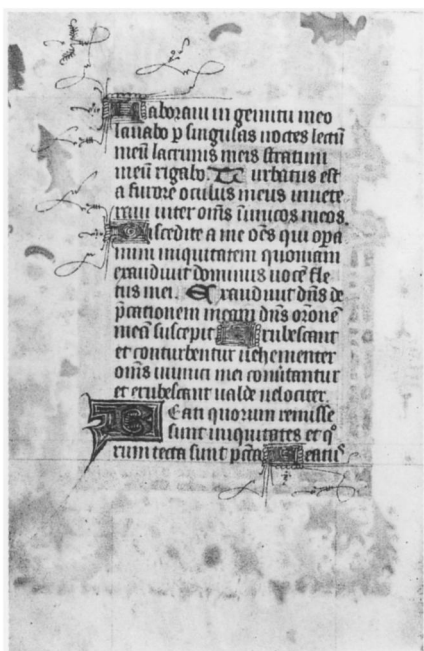 Laboravi in gemitu meo
lavabo p singulas noctes lectū
meū lacrimis meis stratum
meū rigabo. Turbatus est
a furore oculus meus invete
ravi inter oīns inimicos meos.
Discedite a me oēs qui opa
mini iniquitatem quoniam
exaudivit dominus vocē fle
tus mei. Exaudivit dn̄s de
pcationem meam dn̄s oronē
meā suscepit Erubescant
et conturbentur vehementer
oīns inimici mei convtantur
et erubescant valde velociter.
Beati quorum remisse
sunt iniquitates et qo
rum tecta sunt pcta Beatus